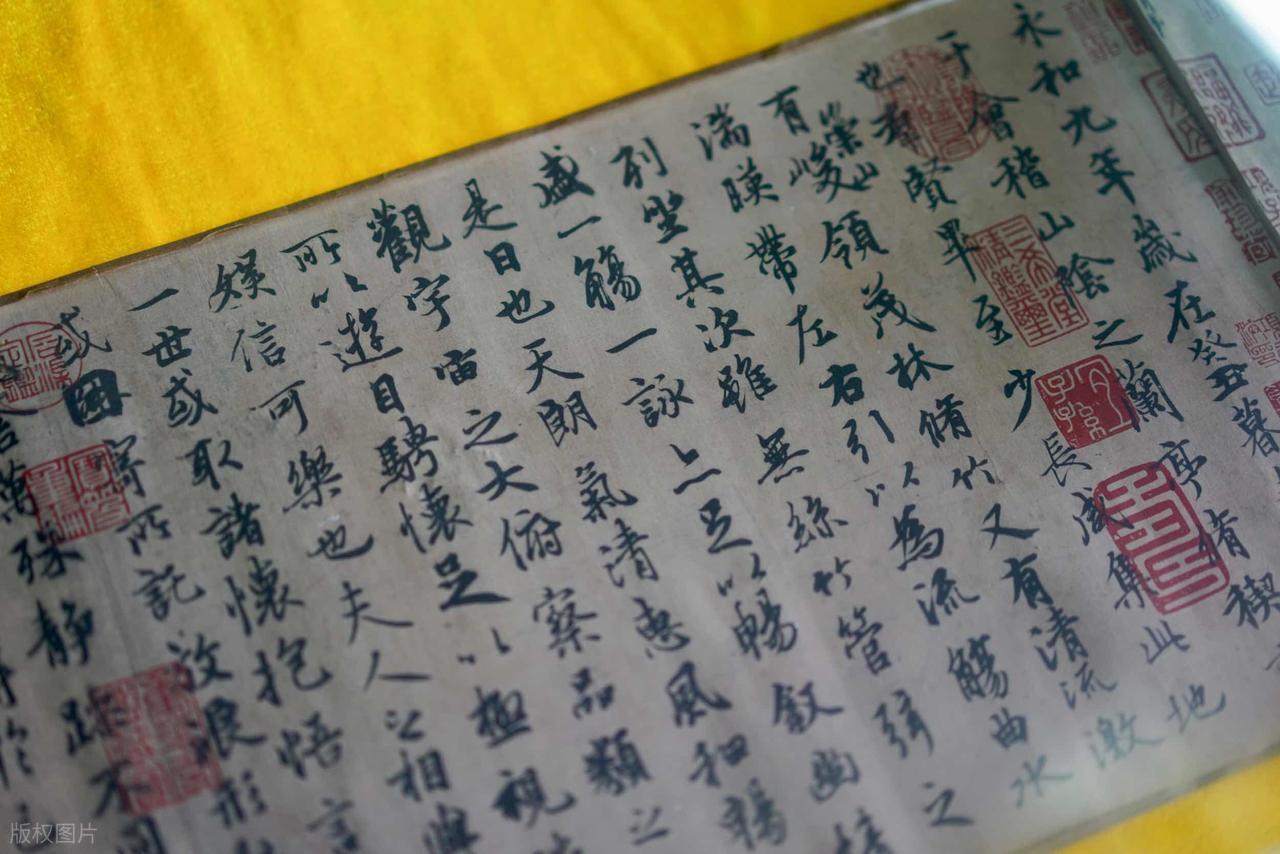 永和九年歲在癸丑暮
于會稽山陰之蘭亭脩禊
也羣賢畢至少長咸集此地
有崇山峻領茂林脩竹又有清流激
湍暎帶左右引以為流觴曲水
列坐其次雖無絲竹管弦之
盛一觴一詠亦足以暢敘幽情
是日也天朗氣清惠風和暢
觀宇宙之大俯察品類之
所以遊目騁懷足以極視
娛信可樂也夫人之相與
一世或取諸懷抱悟言
或因寄所託放浪形
萬殊靜躁不同
版权图片